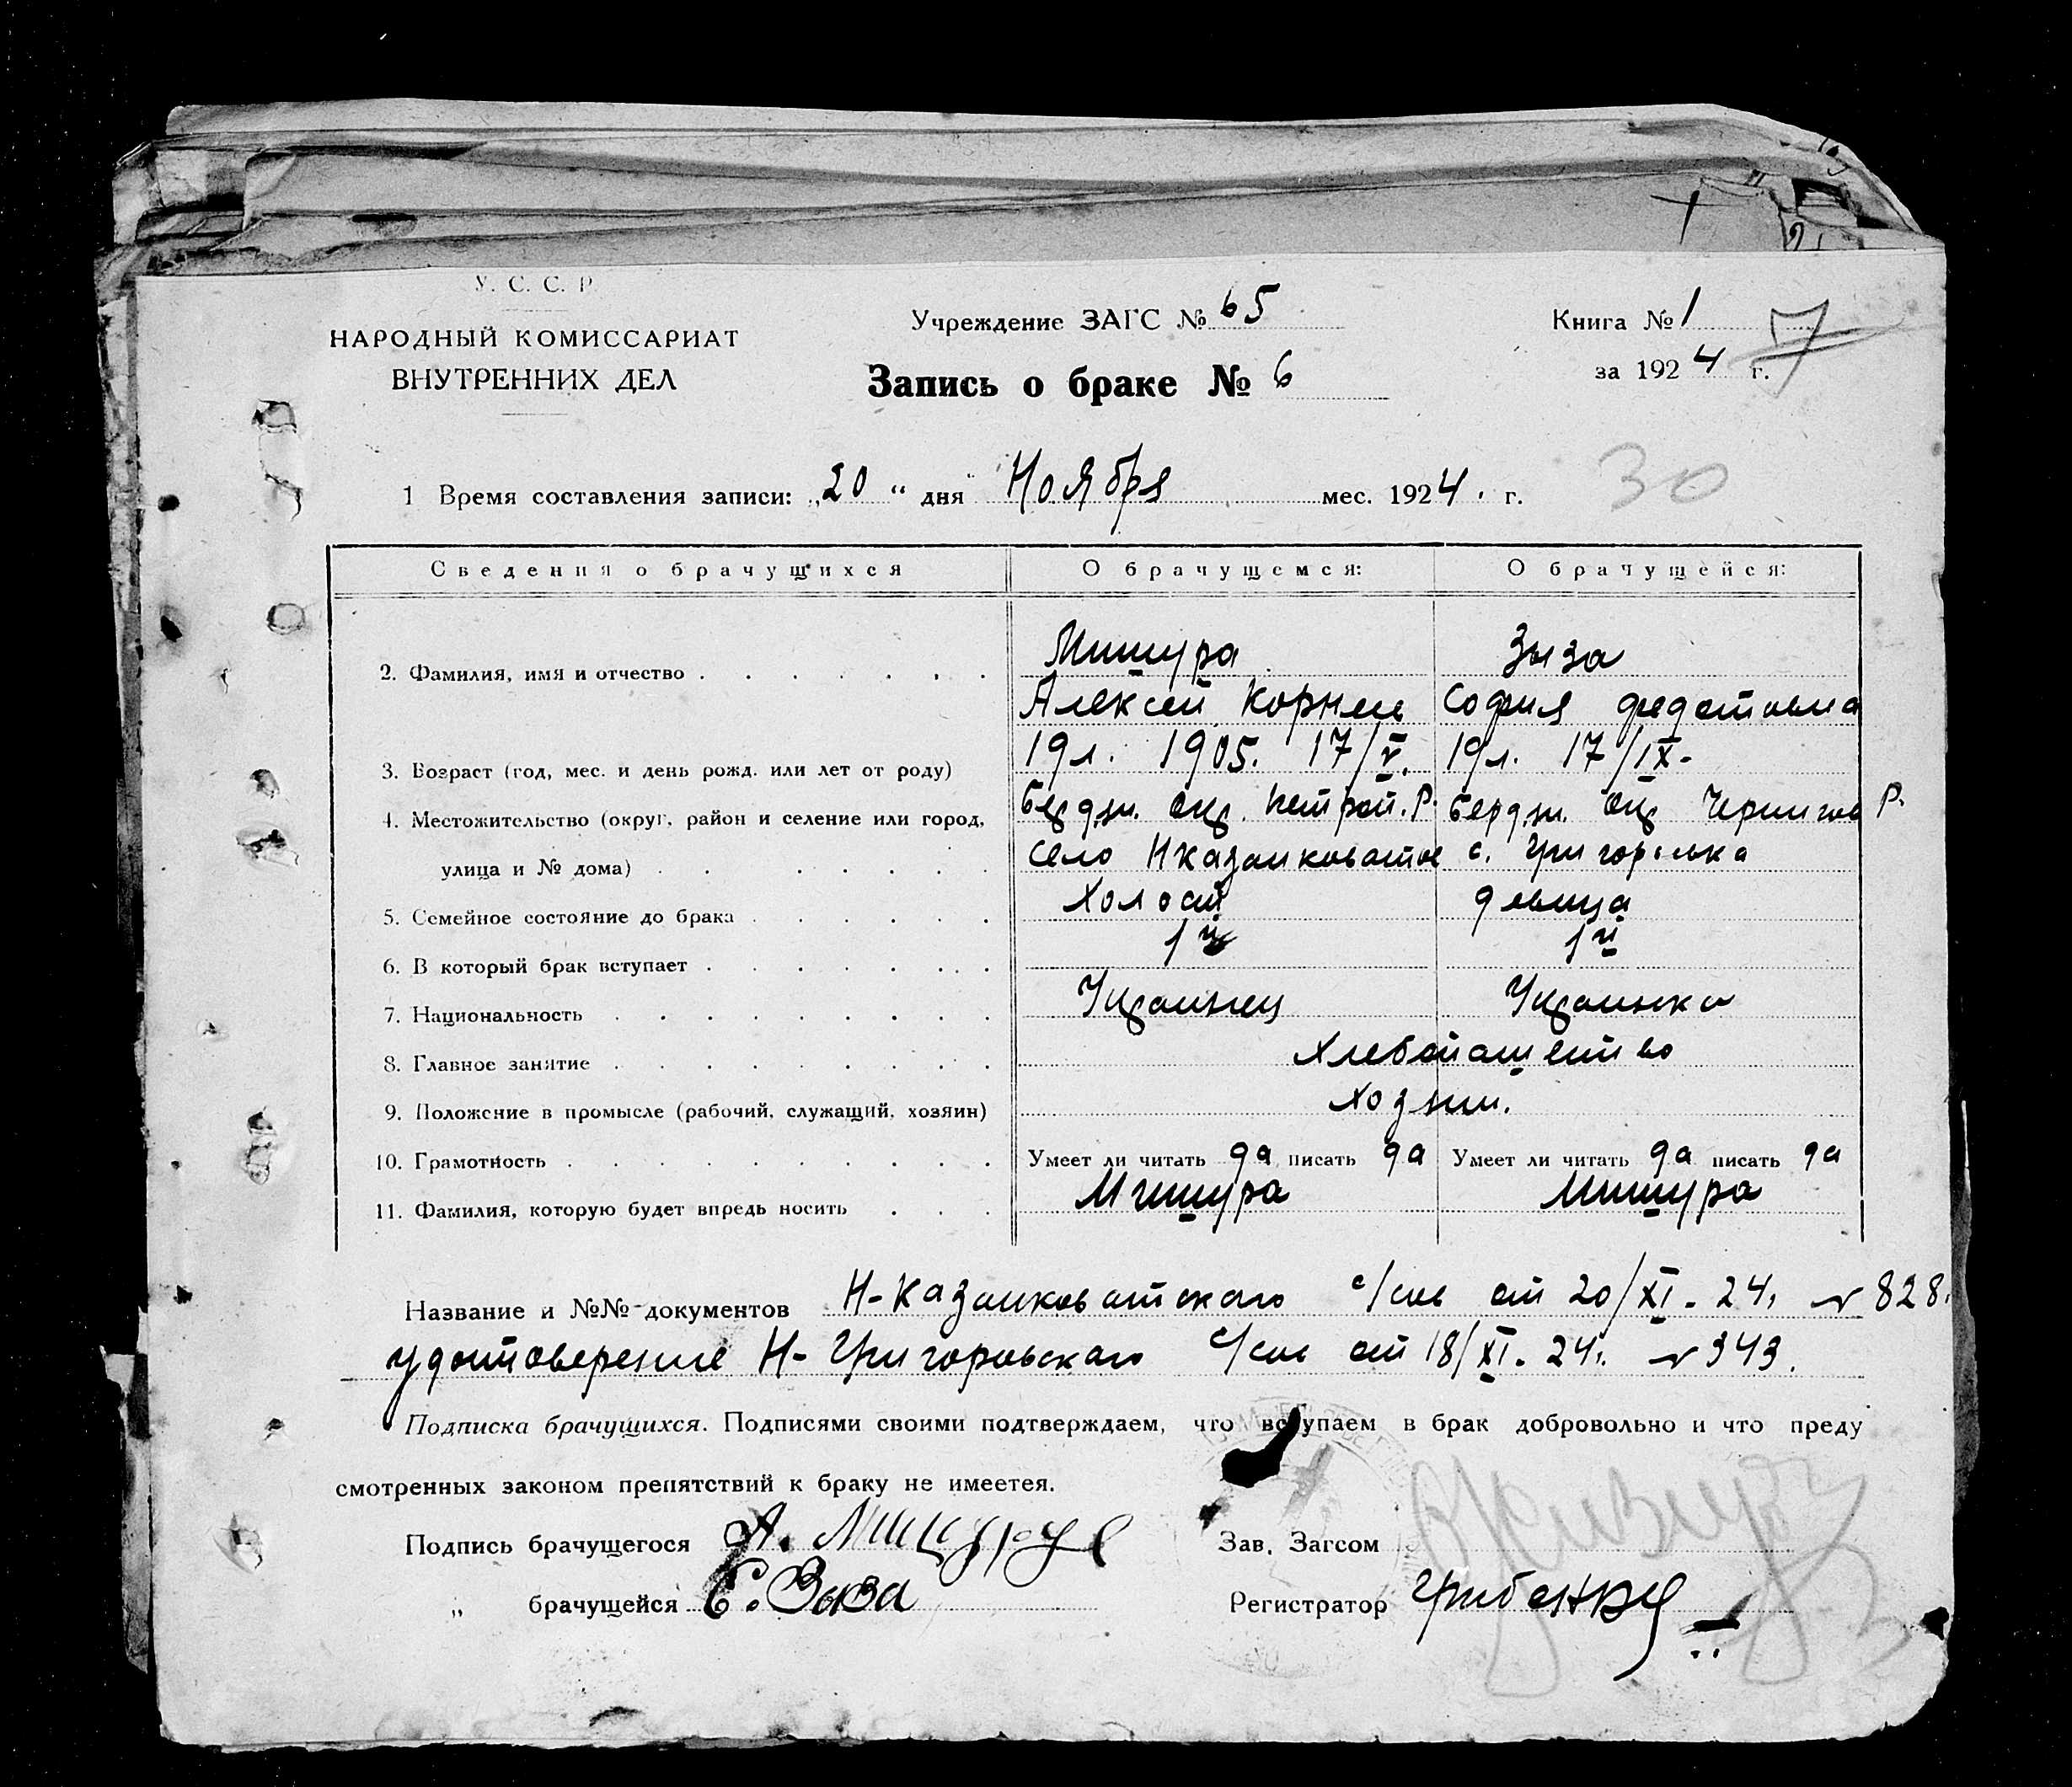 У. С. С. Р
НАРОДНЫЙ КОМИССАРИАТ
ВНУТРЕННИХ ДЕЛ
Учреждение ЗАГС № 65
Запись о браке № 6
Книга № 1
7
за 1924 г.
30
1 Время составления записи: „20“ дня Ноября мес. 1924. г.
Сведения о брачущихся О брачущемся: О брачущейся:
Мишура Зыза
2. Фамилия, имя и отчество
Алексей Корнее София Федотовна
3. Возраст (год, мес. и день рожд. или лет от роду) 19л. 1905. 17/V. 19л. 17/IX.
4. Местожительство (округ, район и селение или город, Бердян. Окр. Петроп. Р. Бердян. Окр Чернигов Р.
улица и № дома) село Нказанковатое с. Григорьевка
5. Семейное состояние до брака Холост девица
6. В который брак вступает 1й 1й
7. Национальность Украинец Украинка
8. Главное занятие Хлебопашество
9. Положение в промысле (рабочий, служащий, хозяин) Хозяин.
10. Грамотность Умеет ли читать да писать да Умеет ли читать да писать да
11. Фамилия, которую будет впредь носить Мишура Мишура
Название и №№ документов Н-Казанковатского с/сов от 20/XI-24, № 828.
удостоверение Н-Григоровского с/сов от 18/XI-24г. № 343.
Подписка брачущихся. Подписями своими подтверждаем, что вступаем в брак добровольно и что преду
смотренных законом препятствий к браку не имеется.
Подпись брачущегося А. Мишура Зав. Загсом
„ брачущейся С. Зыза Регистратор